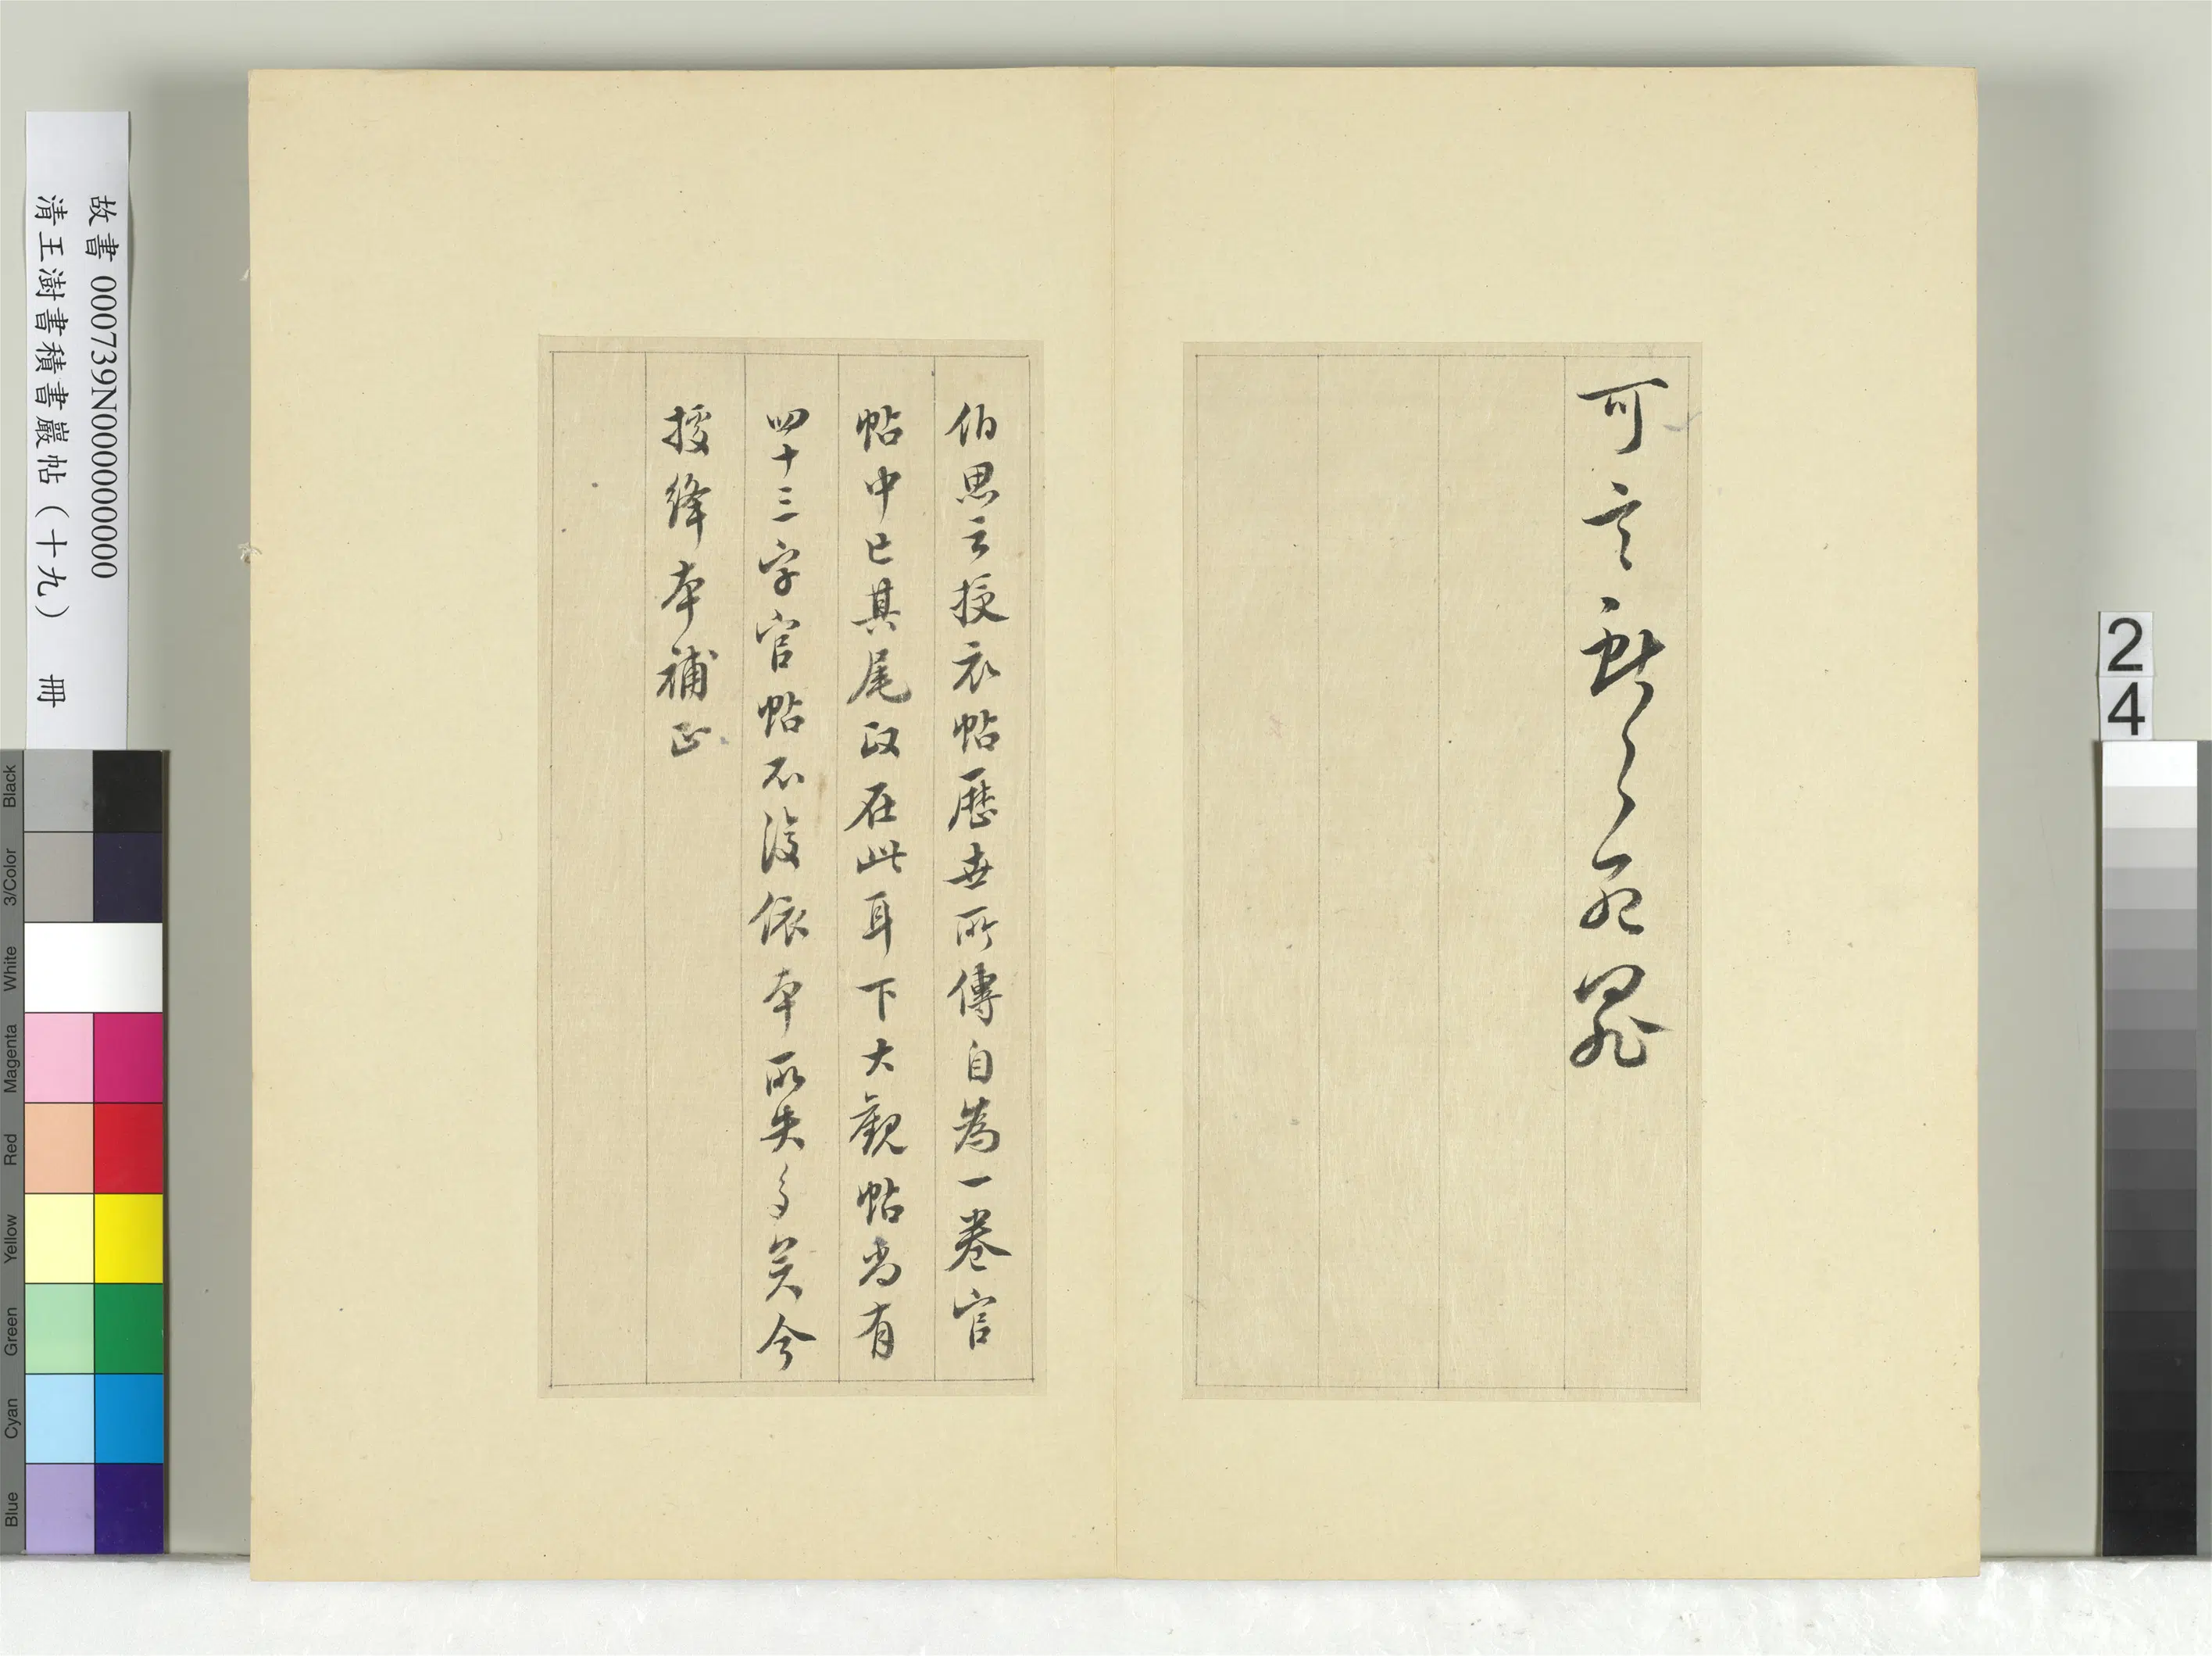 可言獻之死罪
伯思云授衣帖歷世所傳自為一卷官
帖中亡其尾政在此耳下大觀帖尚有
四十三字官帖不復依本所失多矣今
據絳本補正
故書 000739N000000000
清王澍書積書巖帖（十九） 冊
24
Black
3/Color
White
Magenta
Red
Yellow
Green
Cyan
Blue